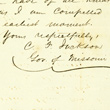 as I am compelled
earliest moment.
Yours respectfully,
C. F. Jackson
Gov of Missouri